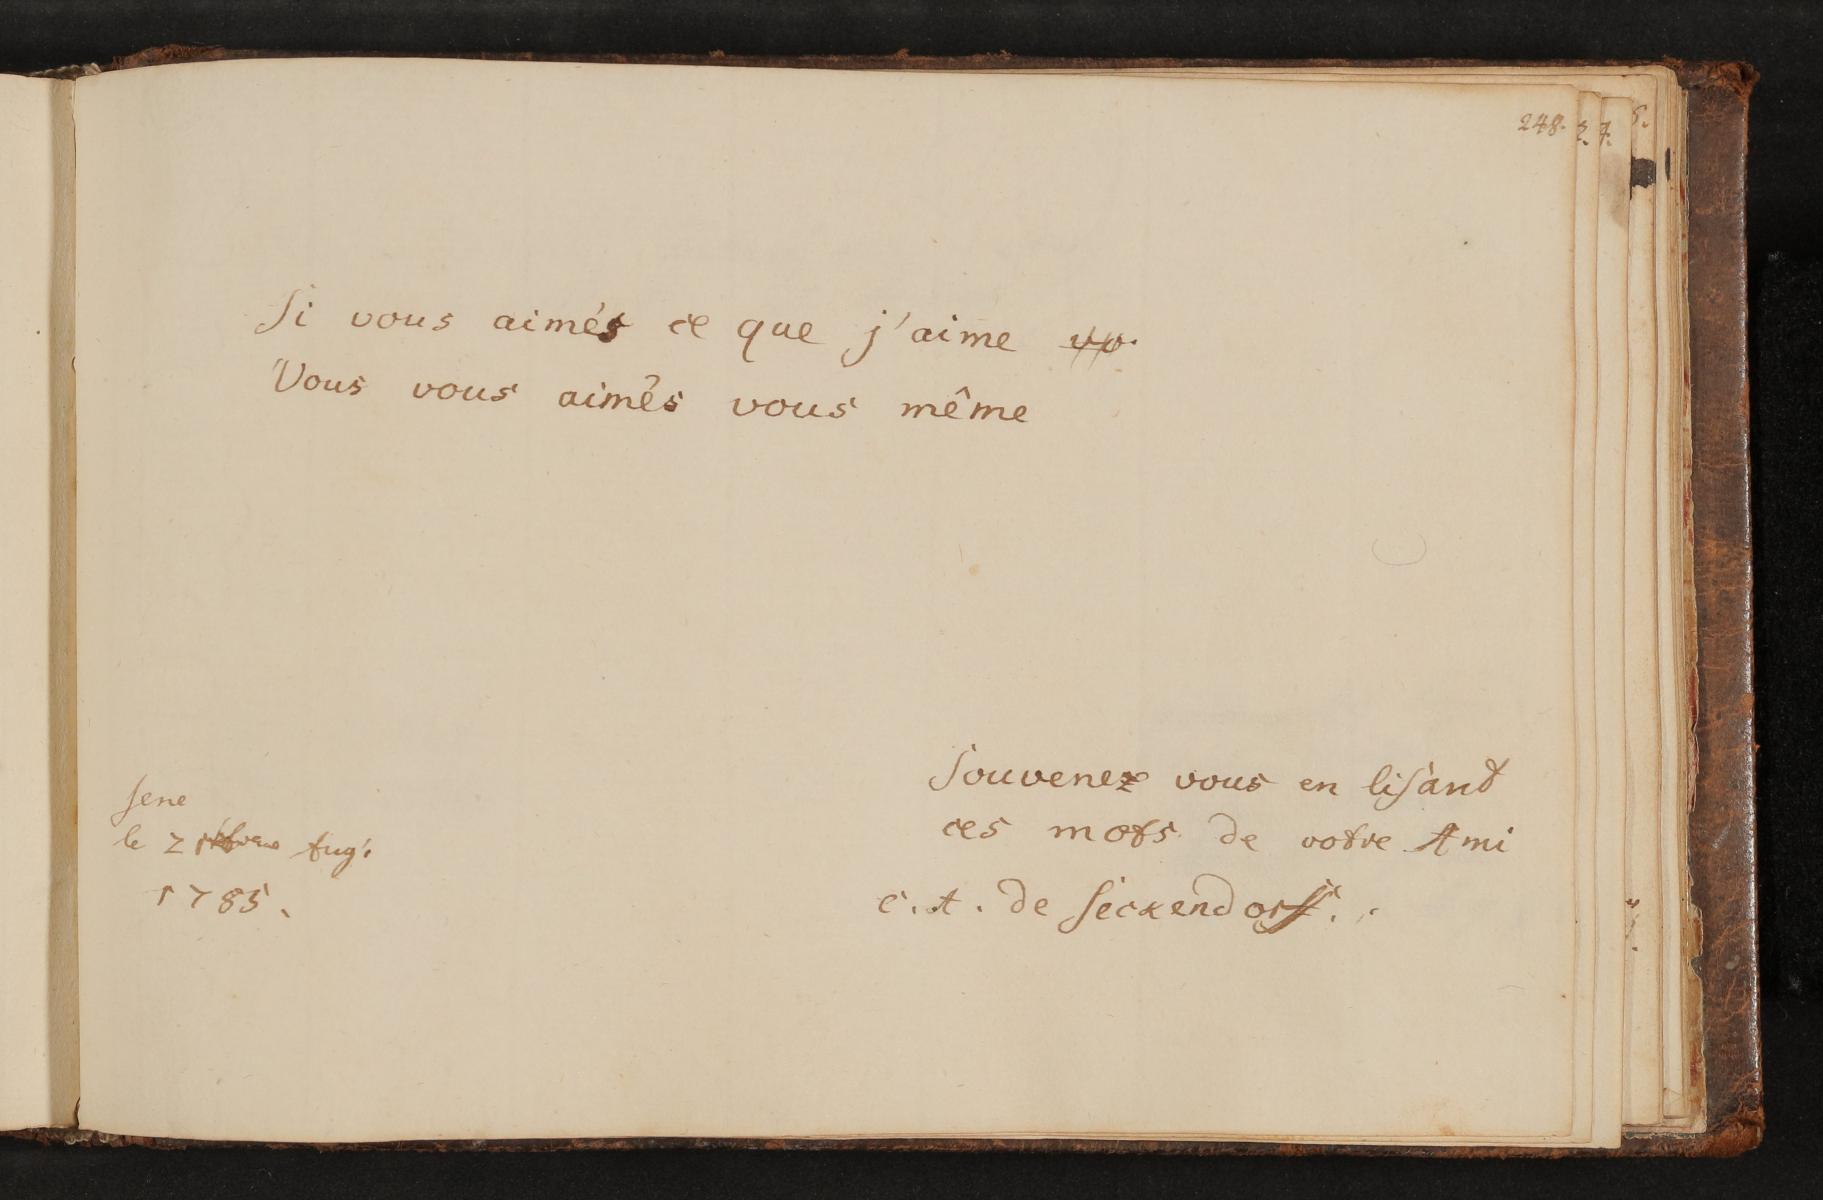 248.
Si vous aimés ce que j'aime
Vous vous aimés vous même
Souvenez vous en lisant
ces mots de votre Ami
C. A. de Seckendorff.
Jene
le 2 Aug.
1785.